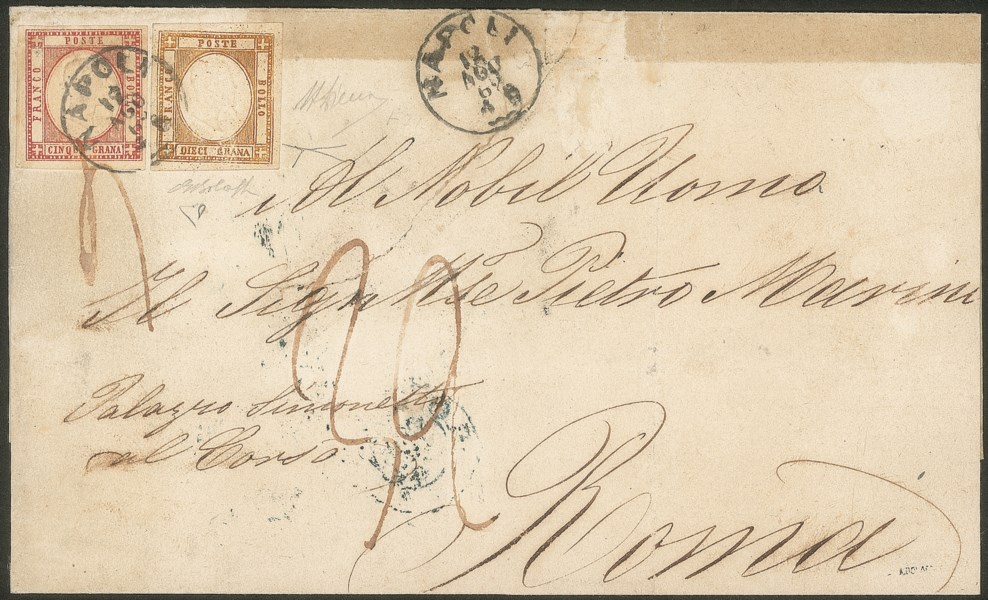 POSTE
FRANCO
BOLLO
CINQUE GRANA
POSTE
FRANCO
BOLLO
DIECI GRANA
NAPOLI
NAPOLI
12
AGO
Al Nobil Uomo
Il Sigr Mse Pietro Marini
Palazzo Simonetti
al Corso
Roma